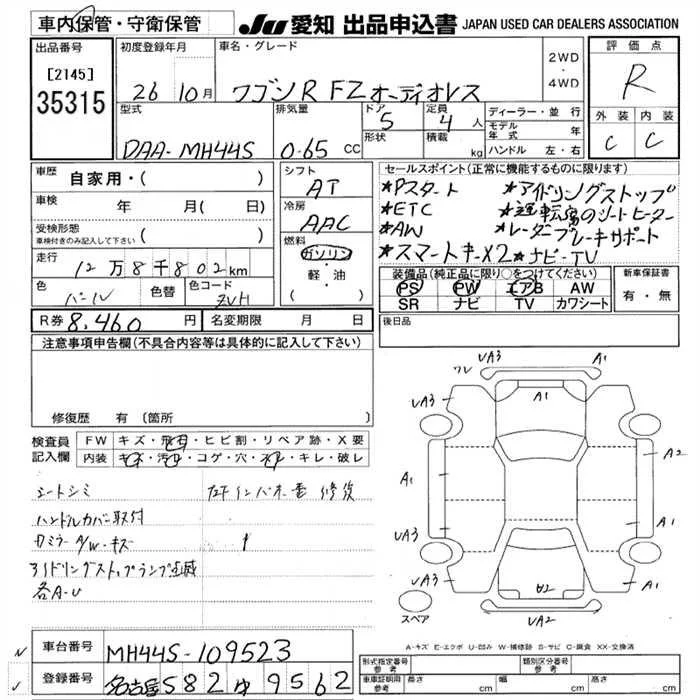 車内保管・守衛保管
JU 愛知 出品申込書 JAPAN USED CAR DEALERS ASSOCIATION
出品番号
[2145]
35315
初度登録年月
26 10月
車名・グレード
ワゴンR FZオーディオレス
2WD
・
4WD
評価点
R
外装 内装
C C
型式
DAA-MH44S
排気量
0.65 CC
ドア
5
形状
定員
4 人
積載
kg
ディーラー・並行
モデル年式 年
ハンドル 左・右
車歴
自家用・( )
車検
年 月( 日)
受検形態
車検付きのみ記入して下さい ( )
走行
12万8千802km
色
パール
色替
色コード
ZVH
シフト
AT
冷房
AAC
燃料
ガソリン
軽・油
( )
セールスポイント(正常に機能するものに限ります)
*Pスタート *アイドリングストップ
*ETC *運転席のシートヒーター
*AW *レーダーブレーキサポート
*スマートキーX2 *ナビ・TV
装備品(純正品に限り○をつけてください)
PS PW エアB AW
SR ナビ TV カワシート
新車保証書
有・無
R券 8,460 円
名変期限 月 日
後日品
注意事項申告欄(不具合内容等は具体的に記入して下さい)
修復歴 有 (箇所
検査員
記入欄
FW キズ・飛石・ヒビ割・リペア跡・X要
内装 キズ・汚れ・コゲ・穴・ネジ・キレ・破レ
シートシミ
ハンドルカバー取付
各A-U
UA3 A1
UA3 A1 UA3
A1 A2
A1
UA3 A1
UA2
スペア
A-キズ E-エクボ U-凹み W-補修跡 S-サビ C-腐食 XX-交換済
車台番号 MH44S-109523
登録番号 名古屋 582 ゆ 9562
形式指定番号
参考
類別区分番号
参考
車庫証明用
参考
長さ cm 幅 cm 高さ cm